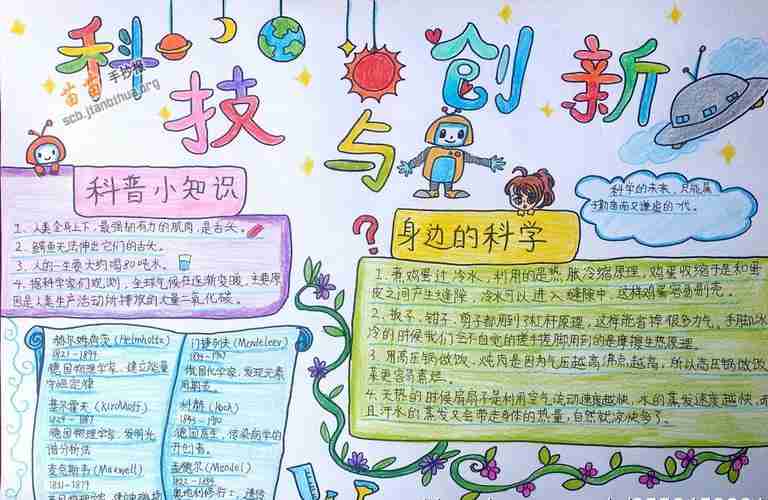 科技与创新
苗苗手抄报
scb.jianbihua.org
科普小知识
1、人类全身上下,最强韧有力的肌肉,是舌头。
2、鳄鱼无法伸出它们的舌头。
3、人的一生要大约喝80吨水。
4、据科学家们观测,全球气候在逐渐变暖,主要原
因是人类生产活动所排放的大量二氧化碳。
赫尔姆荷茨(Helmholtz)
1821-1894
德国物理学家,建立能量
守恒定律
基尔霍夫(Kirchhoff)
1824-1887
德国物理学家,发明光
谱分析法
麦克斯韦(Maxwell)
1831-1879
门捷列夫(Mendeleev)
1834-1907
俄国化学家,发现元素
周期表。
科赫(Koch)
1843-1910
德国医生,传染病学的
开创者。
孟德尔(Mendel)
1822-1884
奥地利修行士,遗传
科学的未来,只能属
于勤奋而又谦虚的一代。
身边的科学
1、煮鸡蛋过冷水,利用的是热胀冷缩原理,鸡蛋收缩于是和蛋
皮之间产生缝隙,冷水可以进入缝隙中,这样鸡蛋容易剥壳。
2、扳子、钳子、剪子都用到了杠杆原理,这样能省掉很多力气。手脚冰
冷的时候我们会不自觉的搓手搓脚用到的是摩擦生热原理。
3、用高压锅做饭、炖肉是因为气压越高沸点越高,所以高压锅做饭、
菜更容易煮烂。
4、天热的时候扇扇子是利用空气流动速度越快,水的蒸发速度越快,而
且汗水的蒸发又会带走身体的热量,自然就凉快多了。